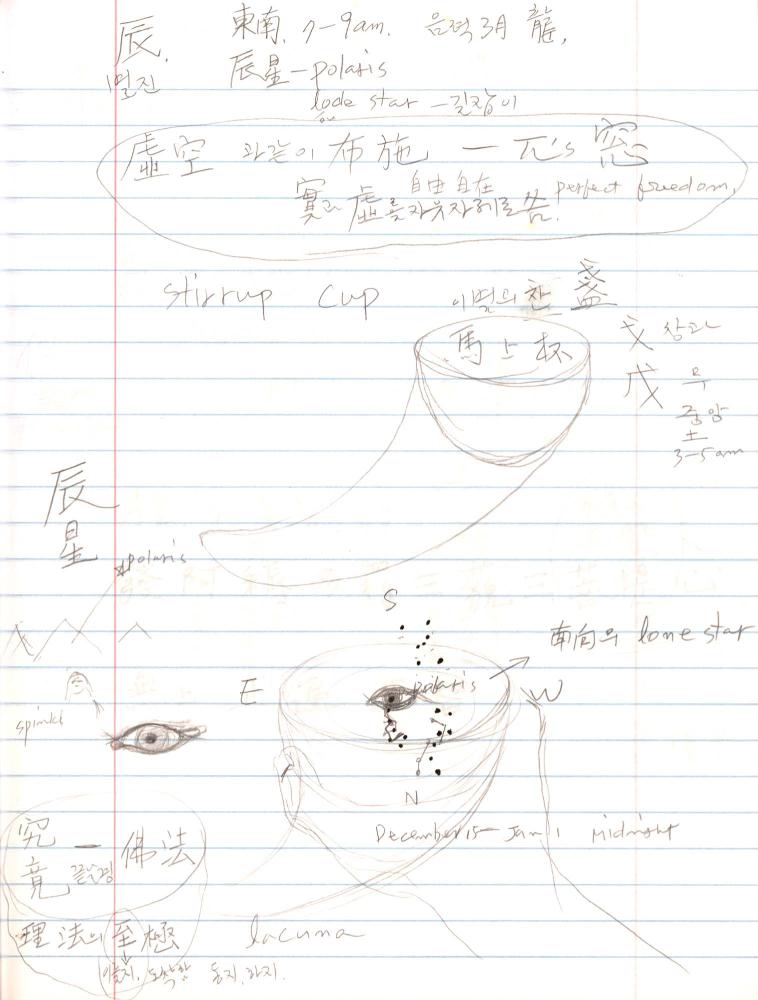 辰. 東南. 7-9am. 음력 3月 龍,
별진 辰星-polaris
lode star -길잡이
虛空 과 같이 布施 - π's 窓
實과 虛를 자유자재로 씀. 自由自在 perfect freedom,
stirrup cup 이별의 잔 盞
馬上杯
戈 창과
戊 무
중앙
土
3-5am
辰星
polaris
S
南向의 lone star
E polaris W
spinkl
N
December 15 - Jan 1 Midnight
究竟 - 佛法
끝날경
理法의 至極 lacuna
이를지, 도착함 동지, 하지.